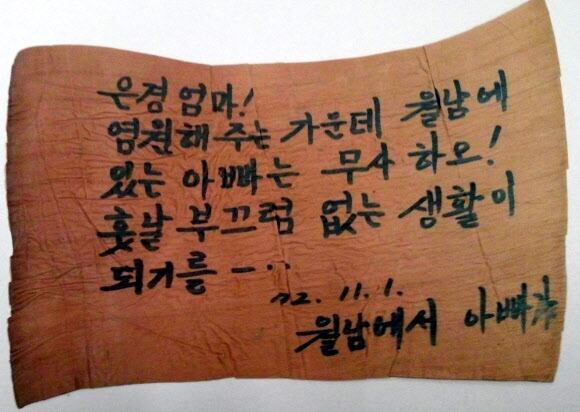 은경엄마!
염원해 주는 가운데 월남에
있는 아빠는 무사 하오!
훗날 부끄럼 없는 생활이
되기를 -··
72. 11. 1.
월남에서 아빠가